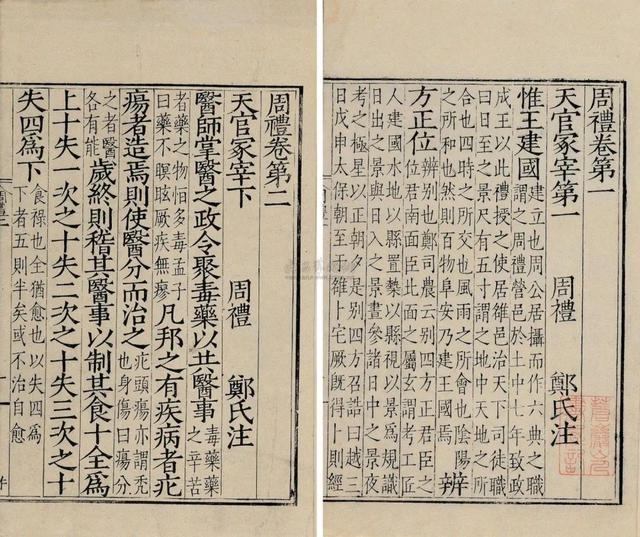 周禮卷第一
天官冢宰第一 周禮 鄭氏注
惟王建國 建立也周公居攝而作六典之職
謂之周禮營邑於土中七年致政
成王以此禮授之使居雒邑治天下司徒職
曰日至之景尺有五寸謂之地中天地之所
合也四時之所交也風雨之所會也陰陽
之所和也然則百物阜安乃建王國焉 辨
方正位 辨別也鄭司農云別四方正君臣之
位君南面臣北面之屬玄謂考工匠
人建國水地以縣置槷以縣視以景爲規識
日出之景與日入之景晝參諸日中之景夜
考之極星以正朝夕是別四方召誥曰越三
日戊申太保朝至于雒卜宅厥既得卜則經
周禮卷第二
天官冢宰下 周禮 鄭氏注
醫師掌醫之政令聚毒藥以共醫事 毒藥藥
之辛苦
者藥之物恒多毒孟子
曰藥不瞑眩厥疾無瘳 凡邦之有疾病者疕
瘍者造焉則使醫分而治之 疕頭瘍亦謂禿
也身傷曰瘍分
之者醫
各有能 歲終則稽其醫事以制其食十全爲
上十失一次之十失二次之十失三次之十
失四爲下 食祿也全猶愈也以失四爲
下者五則半矣或不治自愈